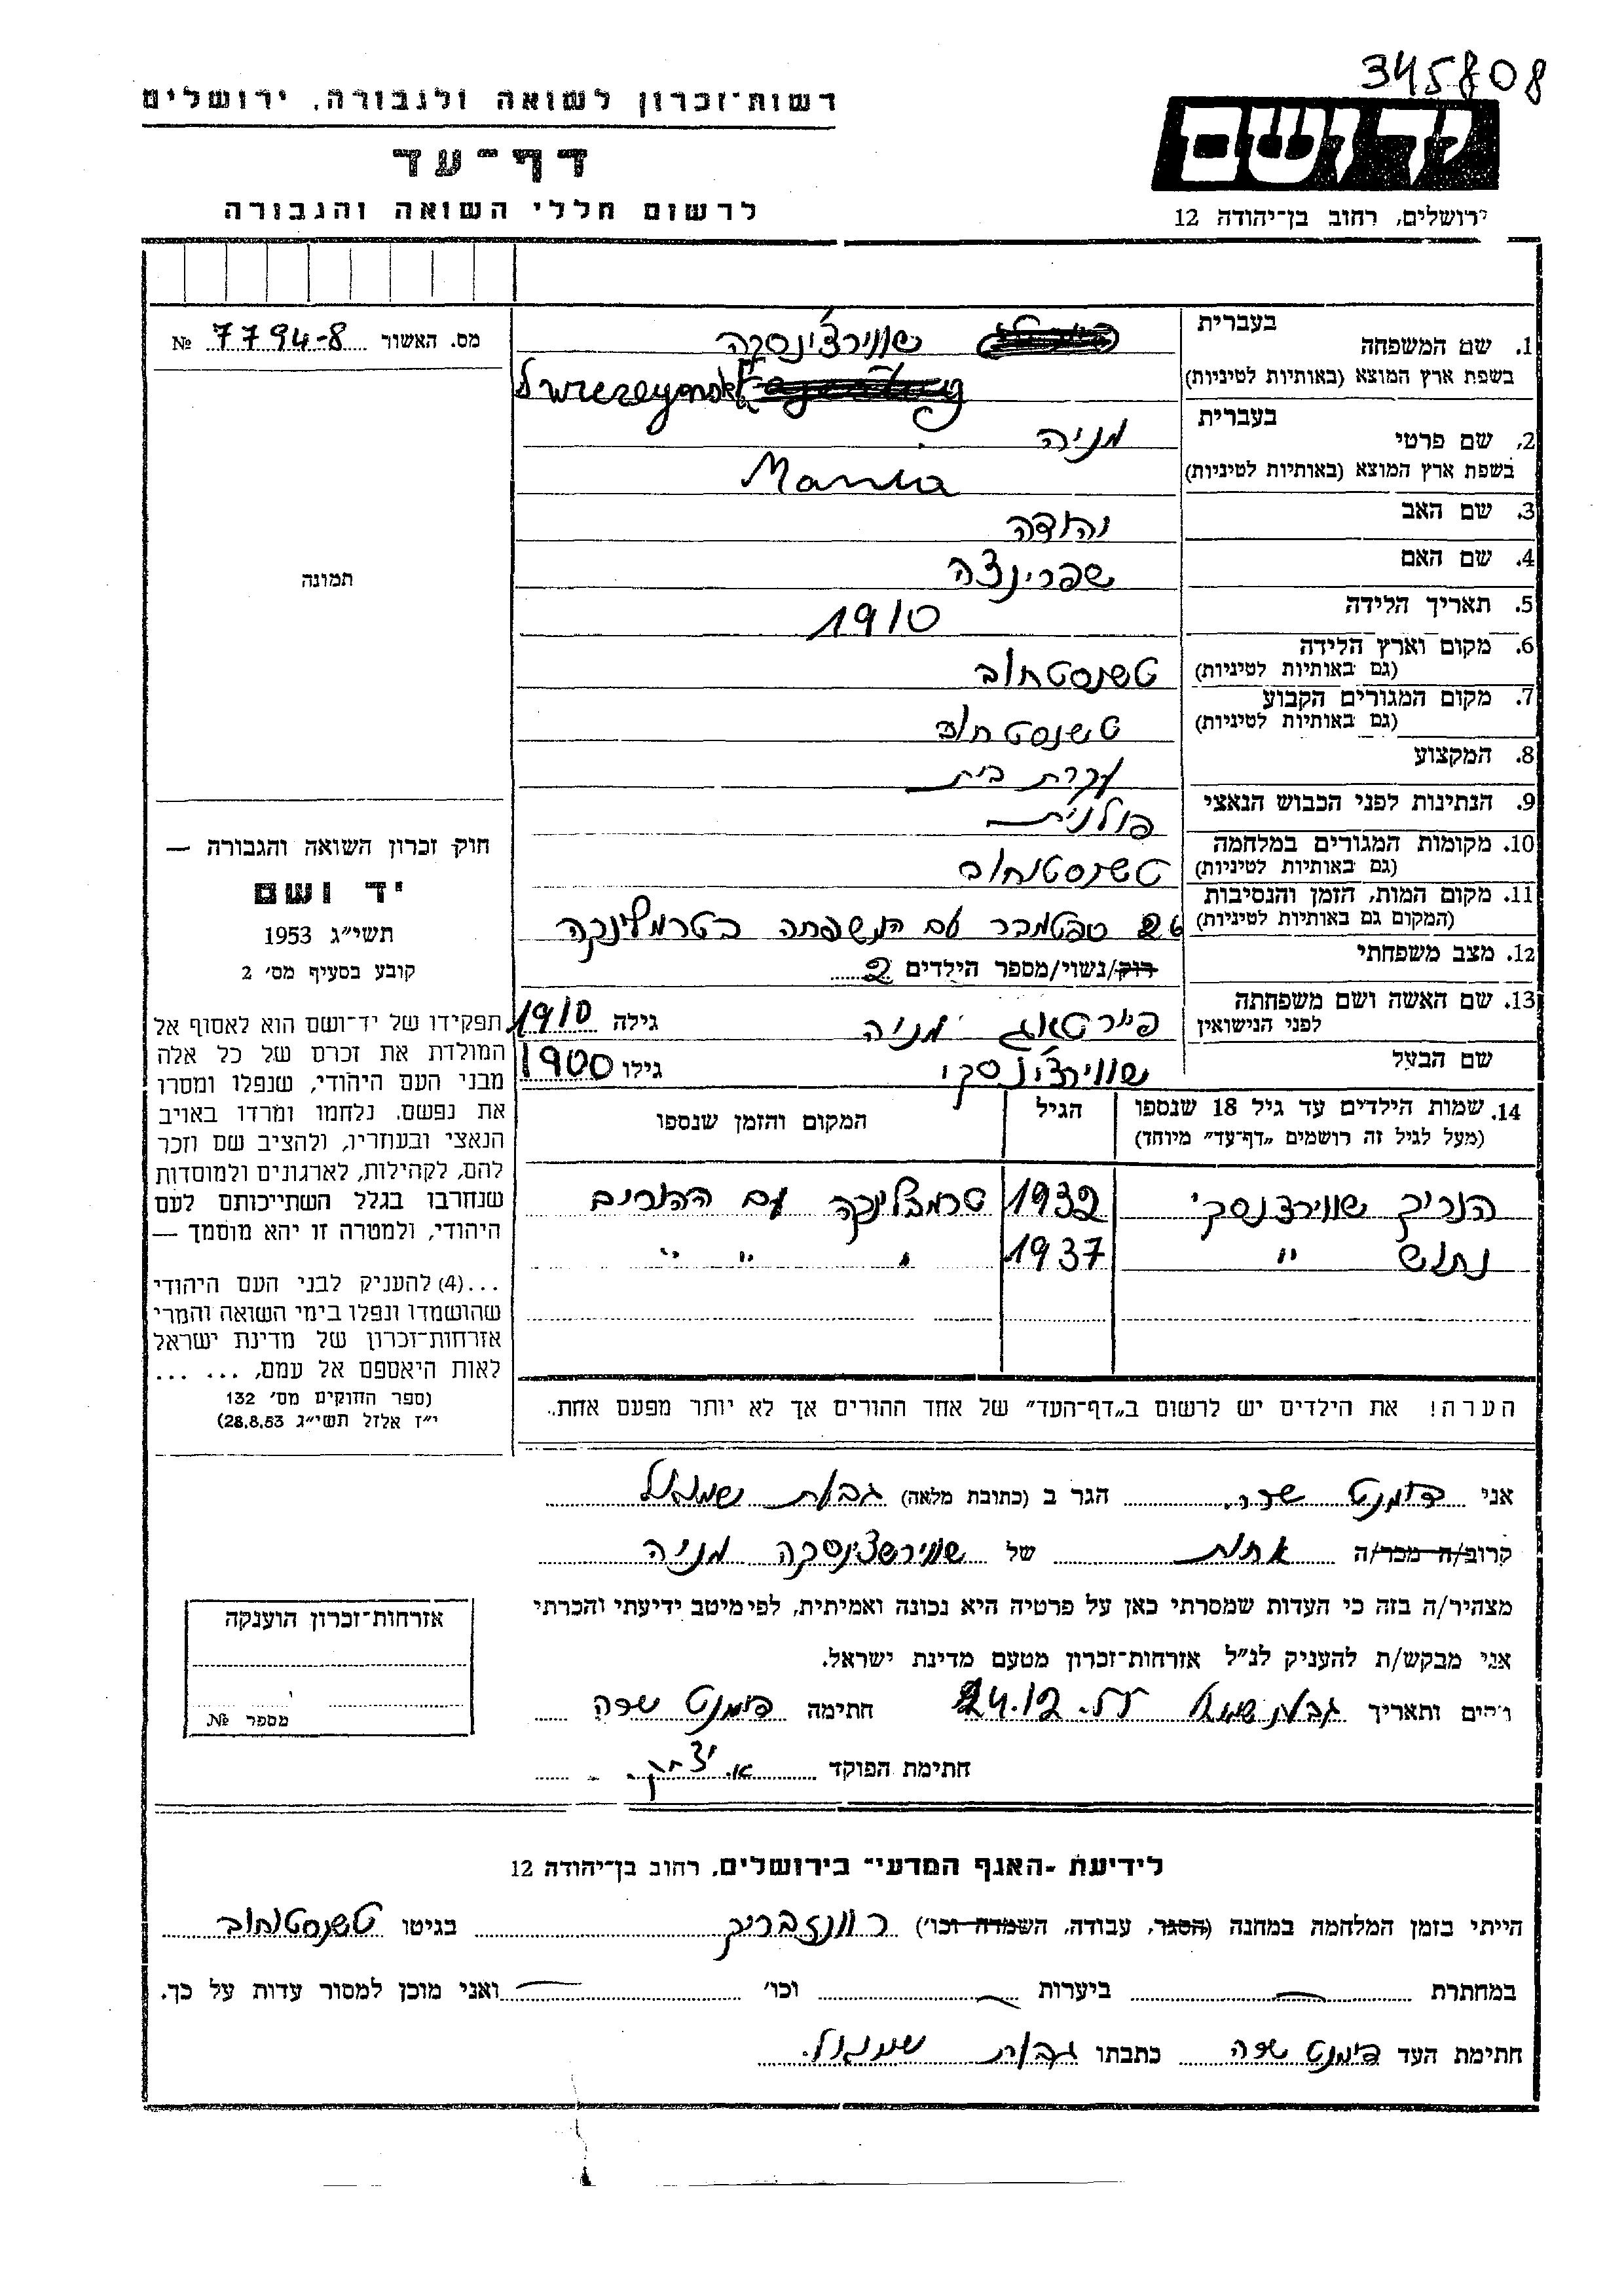 345808
רשות־זכרון לשואה ולגבורה, ירושלים
יד ושם
דף־עד
לרשום חללי השואה והגבורה
ירושלים, רחוב בן־יהודה 12
מס. האשור 7794-8 №
1. שם המשפחה
בעברית שווירצ'ינסקה
בשפת ארץ המוצא (באותיות לטיניות)
2. שם פרטי
בעברית מניה
בשפת ארץ המוצא (באותיות לטיניות) Mania
3. שם האב יהודה
4. שם האם שפרינצה
5. תאריך הלידה 1910
6. מקום וארץ הלידה
(גם באותיות לטיניות) טשנסטחוב
7. מקום המגורים הקבוע
(גם באותיות לטיניות) טשנסטחוב
8. המקצוע עקרת בית
9. הנתינות לפני הכבוש הנאצי פולנית
10. מקומות המגורים במלחמה
(גם באותיות לטיניות) טשנסטוחוב
11. מקום המות, הזמן והנסיבות
(המקום גם באותיות לטיניות) ספטמבר עם המשפחה בטרמבלינקה
12. מצב משפחתי רוק/נשוי/מספר הילדים 2
13. שם האשה ושם משפחתה
לפני הנישואין מניה גילה 1910
שם הבעל שווירצ'ינסקי גילו 1900
14. שמות הילדים עד גיל 18 שנספו
(מעל לגיל זה רושמים „דף־עד" מיוחד)
הגיל
המקום והזמן שנספו
הנריק שווירצנסקי 1932 טרמבלינקה עם ההורים
נתוש " 1937 " " "
הערה! את הילדים יש לרשום ב„דף־העד" של אחד ההורים אך לא יותר מפעם אחת.
תמונה
חוק זכרון השואה והגבורה —
יד ושם
תשי״ג 1953
קובע בסעיף מס׳ 2
תפקידו של יד־ושם הוא לאסוף אל
המולדת את זכרם של כל אלה
מבני העם היהודי, שנפלו ומסרו
את נפשם, נלחמו ומרדו באויב
הנאצי ובעוזריו, ולהציב שם וזכר
להם, לקהילות, לארגונים ולמוסדות
שנחרבו בגלל השתייכותם לעם
היהודי, ולמטרה זו יהא מוסמך —
...(4) להעניק לבני העם היהודי
שהושמדו ונפלו בימי השואה והמרי
אזרחות־זכרון של מדינת ישראל
לאות היאספם אל עמם, ... ...
(ספר החוקים מס׳ 132
י״ז אלול תשי״ג 28.8.53)
אני דימנט שרה הגר ב (כתובת מלאה) גבעת שמואל
קרוב/ה מכר/ה אחות של שווירשצינסקה מניה
מצהיר/ה בזה כי העדות שמסרתי כאן על פרטיה היא נכונה ואמיתית, לפי מיטב ידיעתי והכרתי
אני מבקש/ת להעניק לנ״ל אזרחות־זכרון מטעם מדינת ישראל.
מקום ותאריך גבעת שמואל 24.12.55 חתימה דימנט שרה
חתימת הפוקד א. יצחק
אזרחות־זכרון הוענקה
מספר №
לידיעת ״האגף המדעי״ בירושלים, רחוב בן־יהודה 12
הייתי בזמן המלחמה במחנה (הסגר, עבודה, השמדה וכו׳) רוונזבריק בגיטו טשנסטוחוב
במחתרת — ביערות — וכו׳ — ואני מוכן למסור עדות על כך.
חתימת העד דימנט שרה כתבתו גבעת שמואל.